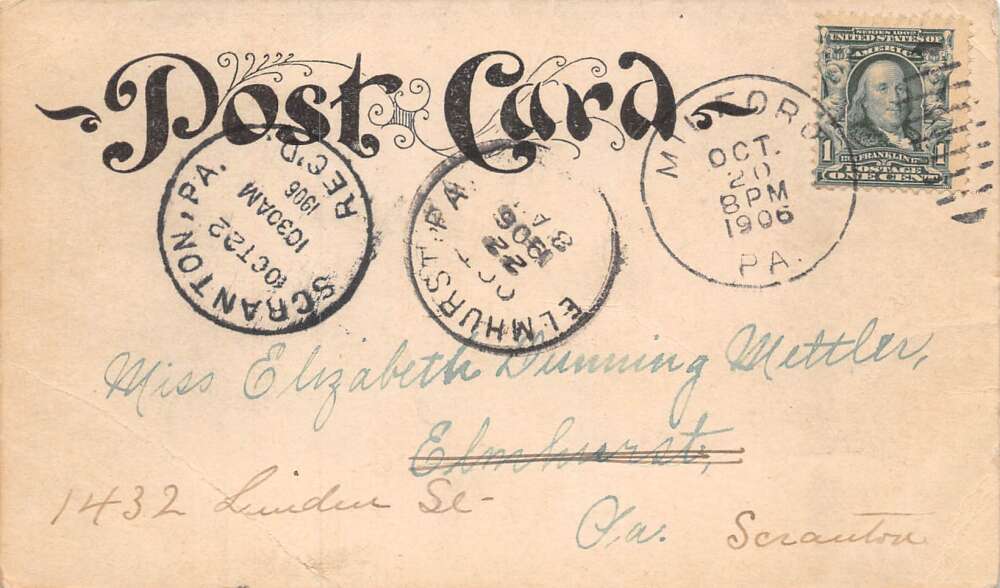 Post Card
SERIES 1902
UNITED STATES OF
AMERICA
1 FRANKLIN 1
POSTAGE
ONE CENT
MILFORD
OCT.
20
8 PM
1906
PA.
SCRANTON, PA.
OCT 22
1030AM
1906
REC'D.
ELMHURST, PA
OCT
22
1906
8 A
Miss Elizabeth Dunning Mettler,
Elmhurst,
1432 Linden St-
Pa. Scranton